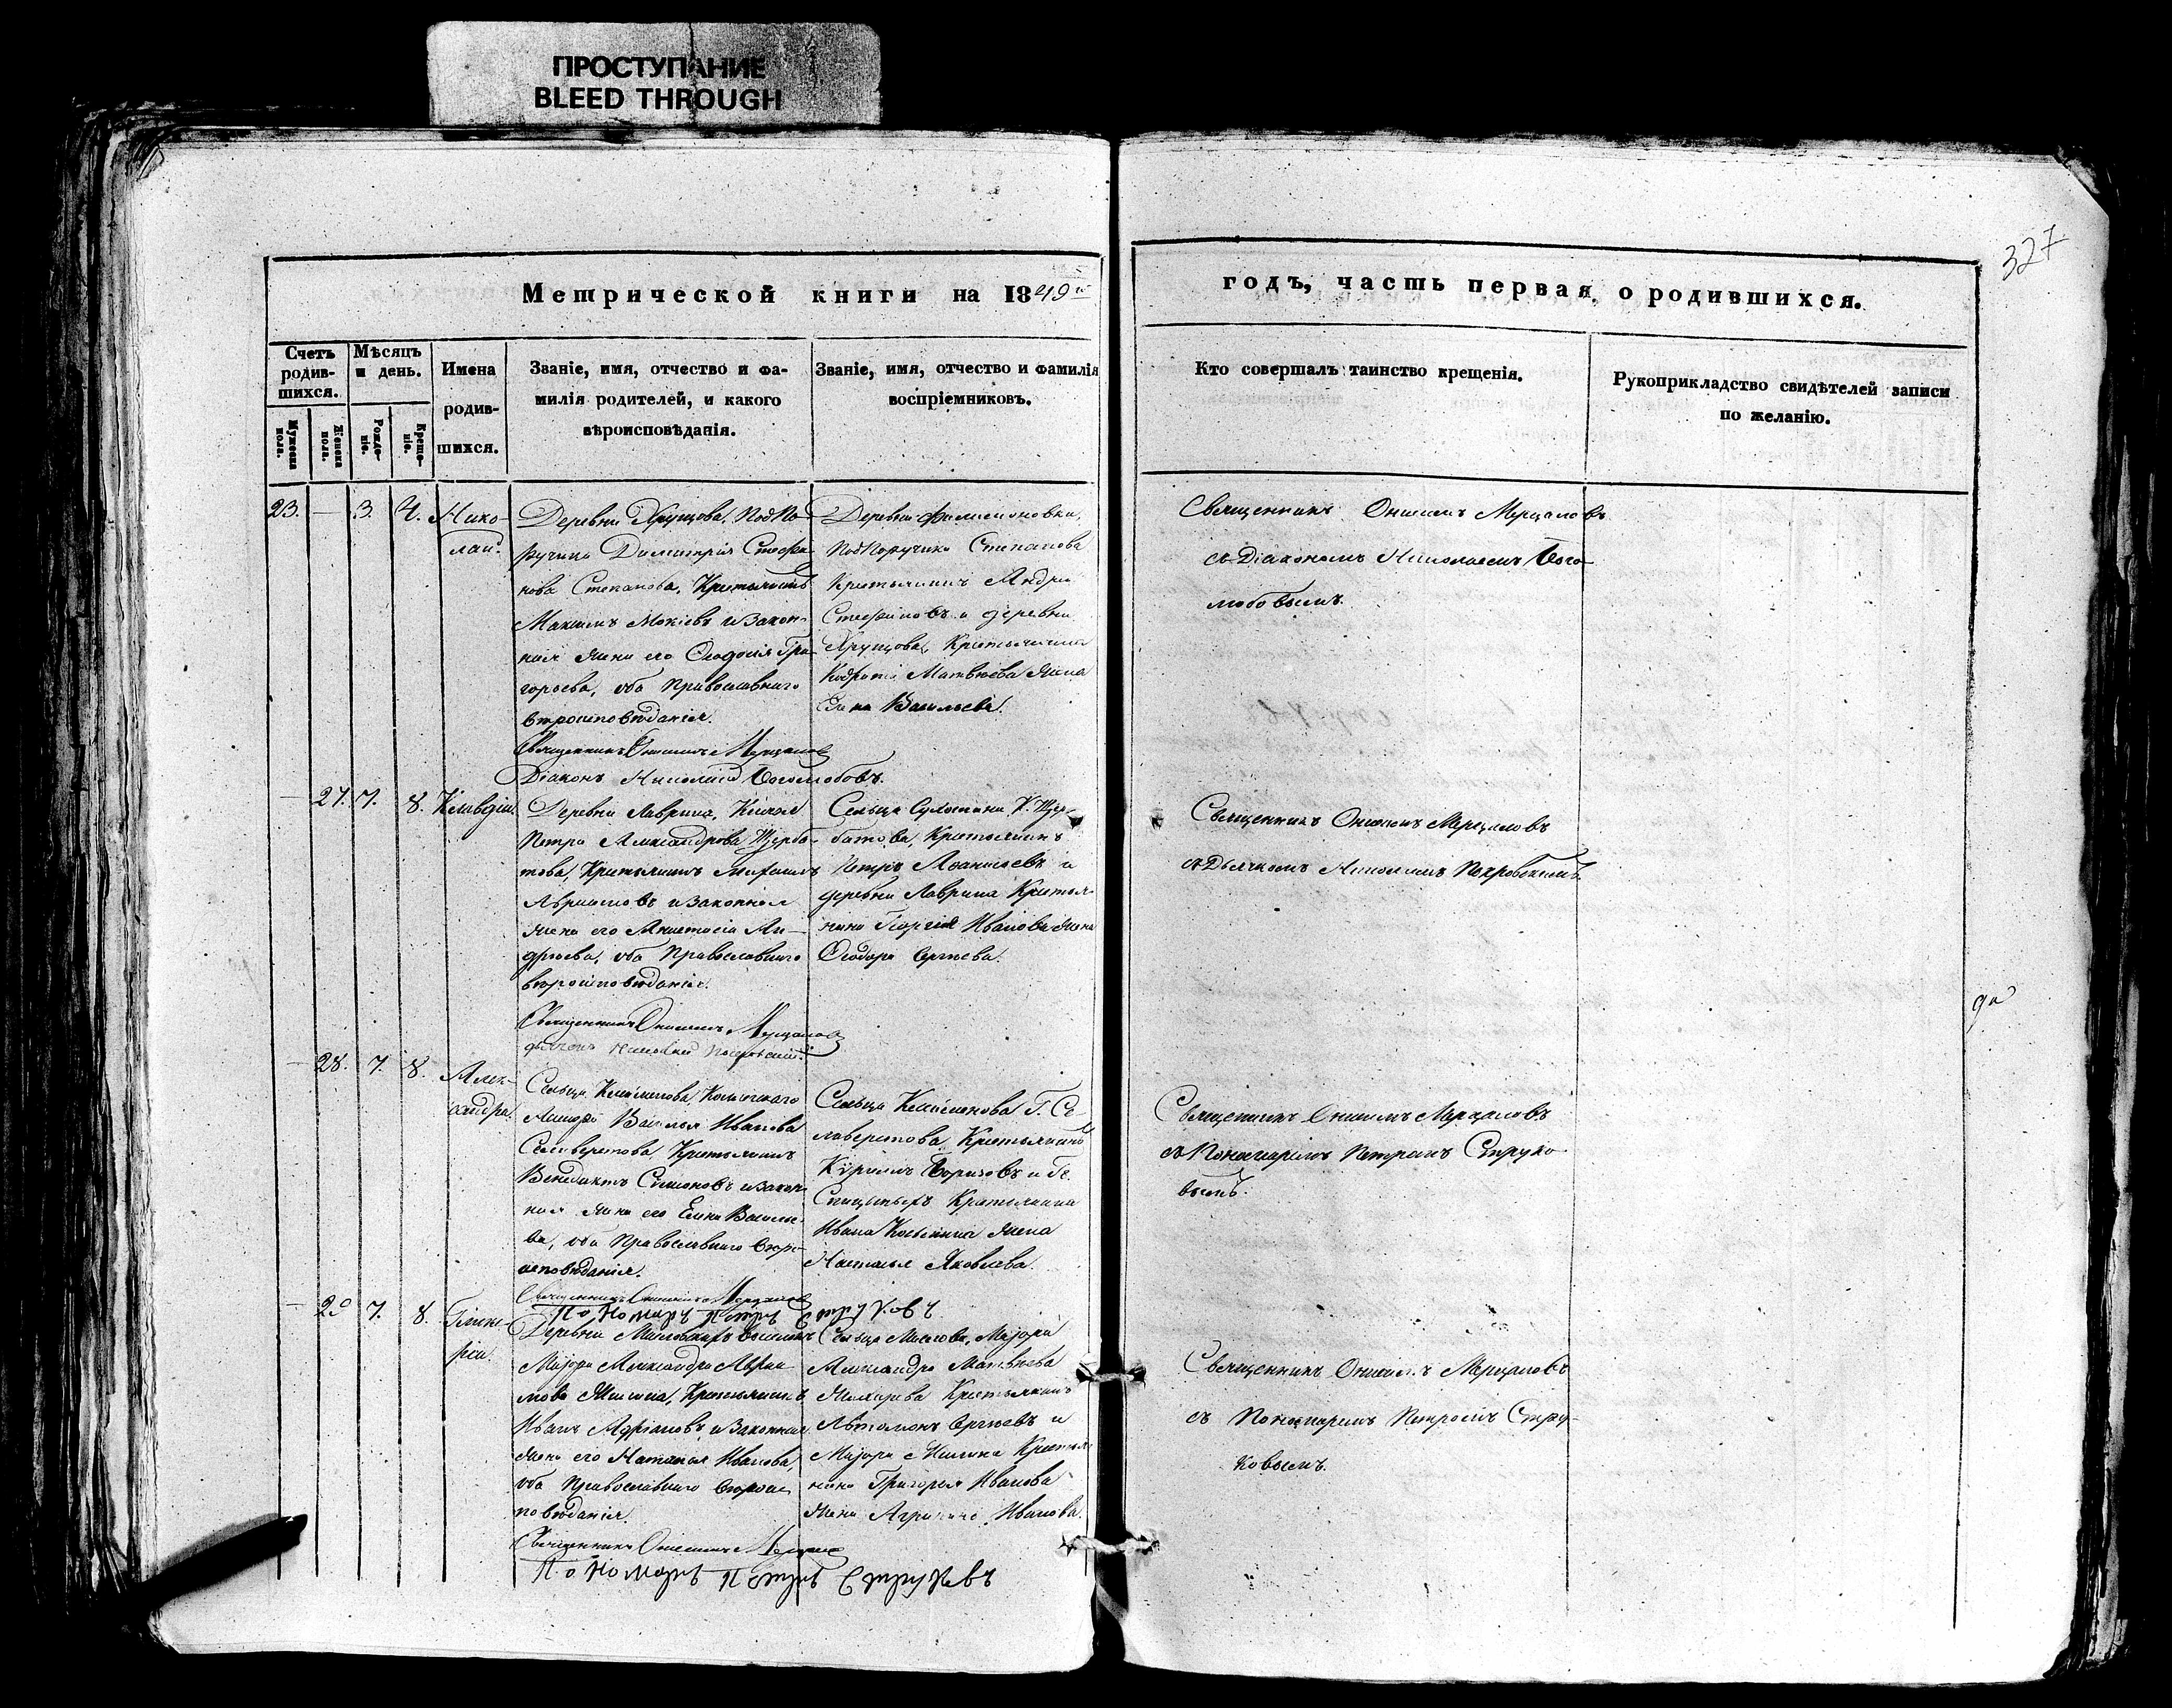 ПРОСТУПАНИЕ
BLEED THROUGH
327
Метрической книги на 1849й
годъ, часть первая, о родившихся.
Счетъ родив-шихся.
Мужеска пола.
Женска пола.
Мѣсяцъ и день.
Рожде-ніе.
Креще-ніе.
Имена
родив-
шихся.
Званіе, имя, отчество и фа-
милія родителей, и какого
вѣроисповѣданія.
Званіе, имя, отчество и фамилія
воспріемниковъ.
Кто совершалъ таинство крещенія.
Рукоприкладство свидѣтелей записи
по желанію.
23. — 3. 4. Нико-
лай.
Деревни Хрущова, Подпо-
ручика Димитрія Стефа-
нова Степанова, Крестьянинъ
Максимъ Мокіевъ и закон-
ная жена его Ѳеодосія Гри-
горьева, оба Православнаго
вѣроисповѣданія.
Священникъ Онисимъ Мерцаловъ
Діаконъ Николай Боголюбовъ.
Деревни Филимоновки,
Подпоручика Степанова
Крестьянинъ Андрей
Стефановъ и деревни
Хрущова, Крестьянина
Матвѣева жена
Васильева.
Священникъ Онисимъ Мерцаловъ
съ Діакономъ Николаемъ Бого-
любовымъ.
— 27. 7. 8. Клавдія.
Деревни Лаврина, Князя
Петра Александрова Щерба-
това, Крестьянинъ
и законная
жена его Анастасія Ан-
дреева, оба Православнаго
вѣроисповѣданія.
Священникъ Онисимъ Мерцаловъ
дьячокъ Николай Покровскій
Сельца К. Щер-
батова, Крестьянинъ
Петръ Аѳанасьевъ и
деревни Лаврина Крестья-
нина Георгія Иванова жена
Ѳеодора Сергѣева.
Священникъ Онисимъ Мерцаловъ
съ Дьячкомъ Николаемъ Покровскимъ.
— 28. 7. 8. Алек-
сандра.
Сельца
Василья Иванова
Селиверстова, Крестьянинъ
Венедиктъ Симоновъ и закон-
ная жена его Елена Василье-
ва, оба Православнаго вѣро-
исповѣданія.
Священникъ Онисимъ Мерцаловъ
Пономарь Петръ Струковъ
Сельца Г. Се-
ливерстова Крестьянинъ
Борисовъ и Г.
Крестьянина
Ивана жена
Настасья Яковлева.
Священникъ Онисимъ Мерцаловъ
съ Пономаремъ Петромъ Струко-
вымъ.
— 29 7. 8. Глике-
рія.
Деревни
Маіора Александра
Крестьянинъ
Иванъ Адріановъ и законная
жена его Наталья Иванова,
оба Православнаго вѣроис-
повѣданія.
Священникъ Онисимъ Мерцаловъ
Пономарь Петръ Струковъ
Сельца Маслова, Маіора
Александра Матвѣева
Крестьянинъ
Автомонъ Сергѣевъ и
Маіора Крестья-
нина Григорья Иванова
жена Иванова.
Священникъ Онисимъ Мерцаловъ
съ Пономаремъ Петромъ Стру-
ковымъ.